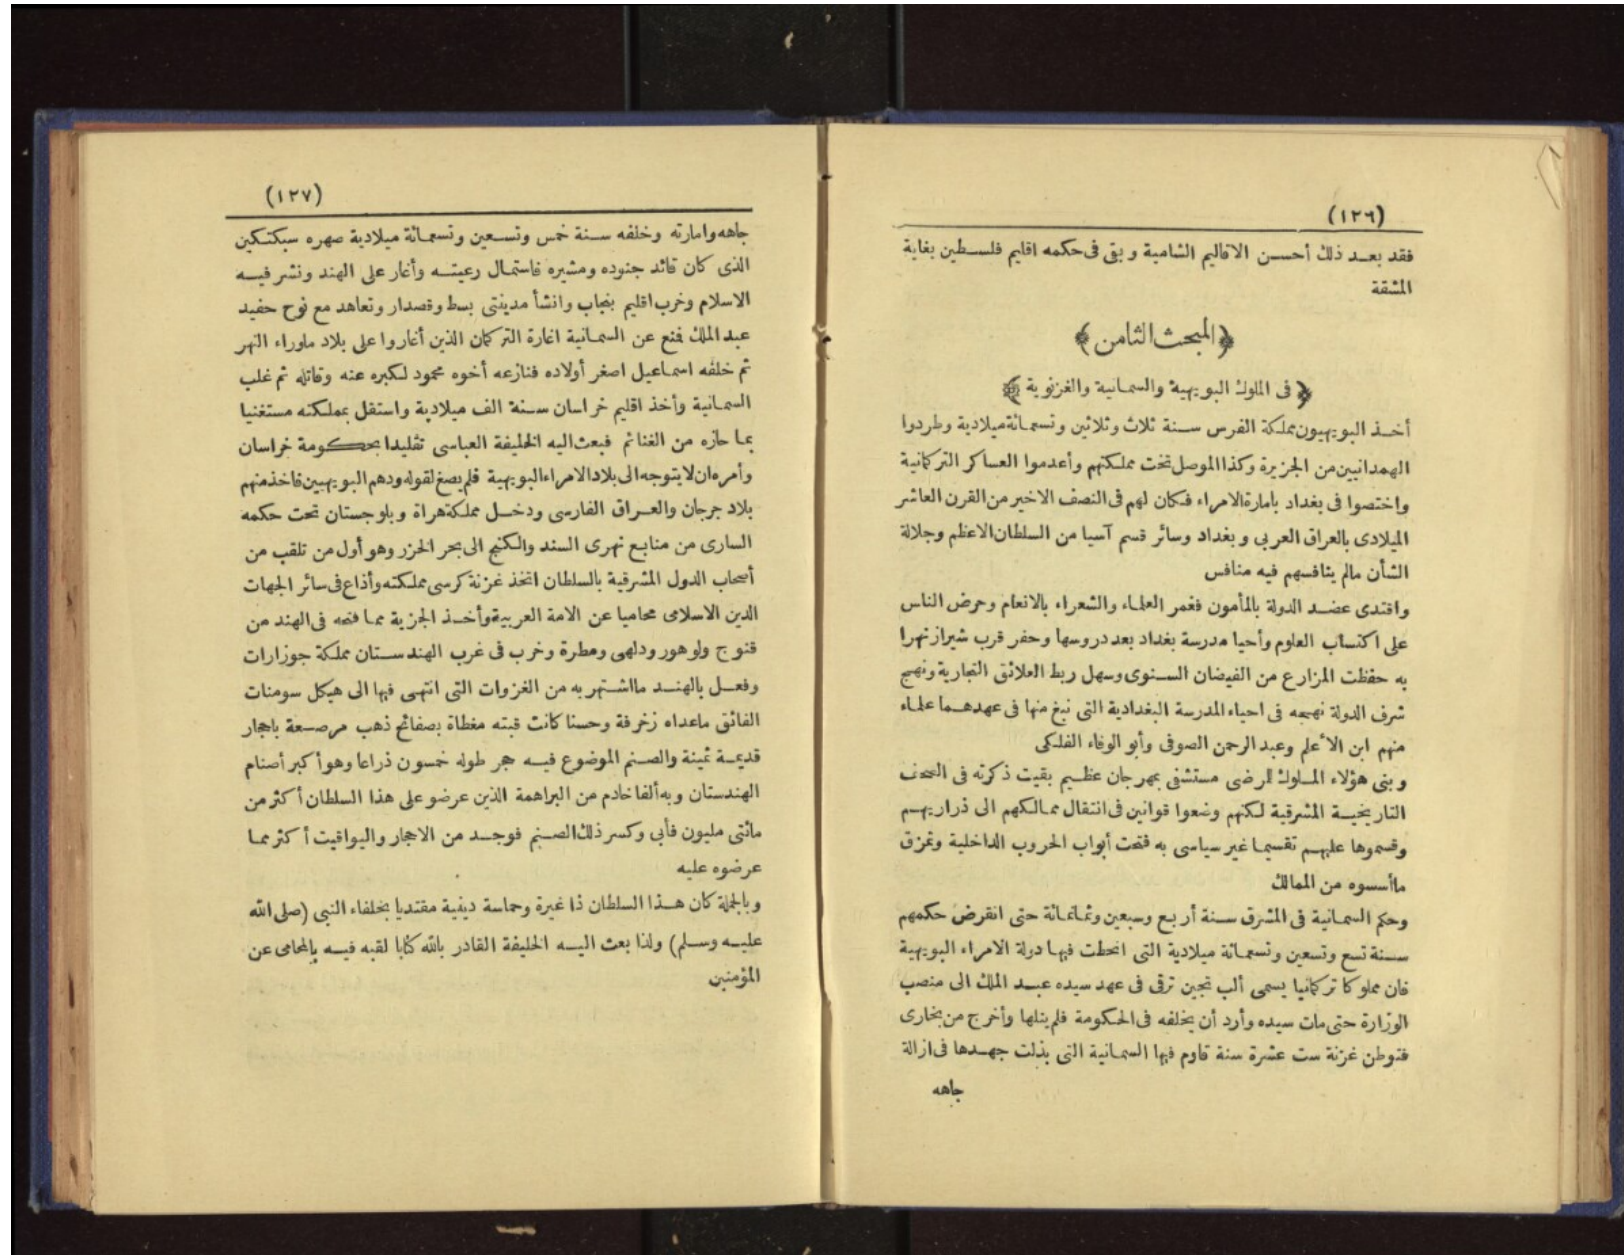 (١٢٦)
فقد بعد ذلك أحسن الاقاليم الشامية وبقى فى حكمه اقليم فلسطين بغاية
المشقة
﴿المبحث الثامن﴾
﴿فى الملوك البويهية والسمانية والغزنوية﴾
أخذ البويهيون مملكة الفرس سنة ثلاث وثلاثين وتسعمائة ميلادية وطردوا
الهمدانيين من الجزيرة وكذا الموصل تخت مملكتهم وأعدموا العساكر التركمانية
واختصوا فى بغداد بامارة الامراء فكان لهم فى النصف الاخير من القرن العاشر
الميلادى بالعراق العربى وبغداد وسائر قسم آسيا من السلطان الاعظم وجلالة
الشأن مالم ينافسهم فيه منافس
واقتدى عضد الدولة بالمأمون فغمر العلماء والشعراء بالانعام وحرض الناس
على اكتساب العلوم وأحيا مدرسة بغداد بعد دروسها وحفر قرب شيراز نهرا
به حفظت المزارع من الفيضان السنوى وسهل ربط العلائق التجارية ونهج
شرف الدولة نهجه فى احياء المدرسة البغدادية التى نبغ منها فى عهدهما علماء
منهم ابن الأعلم وعبد الرحمن الصوفى وأبو الوفاء الفلكى
وبنى هؤلاء الملوك للمرضى مستشفى بمهرجان عظيم بقيت ذكرته فى الصحف
التاريخية المشرقية لكنهم وضعوا قوانين فى انتقال ممالكهم الى ذراريهم
وقسموها عليهم تقسيما غير سياسى به فتحت أبواب الحروب الداخلية وتمزق
ماأسسوه من الممالك
وحكم السمانية فى المشرق سنة أربع وسبعين وثمانمائة حتى انقرض حكمهم
سنة تسع وتسعين وتسعمائة ميلادية التى انحطت فيها دولة الامراء البويهية
فان مملوكا تركمانيا يسمى ألب تجين ترقى فى عهد سيده عبد الملك الى منصب
الوزارة حتى مات سيده وأرد أن يخلفه فى الحكومة فلم ينلها وأخرج من بخارى
فتوطن غزنة ست عشرة سنة قاوم فيها السمانية التى بذلت جهدها فى ازالة
جاهه
(١٢٧)
جاهه وامارته وخلفه سنة خمس وتسعين وتسعمائة ميلادية صهره سبكتكين
الذى كان قائد جنوده ومشيره فاستمال رعيته وأغار على الهند ونشر فيه
الاسلام وخرب اقليم بنجاب وانشأ مدينتى بسط وقصدار وتعاهد مع نوح حفيد
عبد الملك فمنع عن السمانية اغارة التركمان الذين أغاروا على بلاد ماوراء النهر
ثم خلفه اسماعيل اصغر أولاده فنازعه أخوه محمود لكبره عنه وقاتله ثم غلب
السمانية وأخذ اقليم خراسان سنة الف ميلادية واستقل بمملكته مستغنيا
بما حازه من الغنائم فبعث اليه الخليفة العباسى تقليدا بحكومة خراسان
وأمره ان لا يتوجه الى بلاد الامراء البويهية فلم يصغ لقوله ودهم البويهيين فاخذ منهم
بلاد جرجان والعراق الفارسى ودخل مملكة هراة وبلوجستان تحت حكمه
السارى من منابع نهرى السند والكنج الى بحر الخزر وهو أول من تلقب من
أصحاب الدول المشرقية بالسلطان اتخذ غزنة كرسى مملكته وأذاع فى سائر الجهات
الدين الاسلامى محاميا عن الامة العربية وأخذ الجزية مما فتحه فى الهند من
قنوج ولوهور ودلهى ومطرة وخرب فى غرب الهندستان مملكة جوزارات
وفعل بالهند مااشتهر به من الغزوات التى انتهى فيها الى هيكل سومنات
الفائق ماعداه زخرفة وحسنا كانت قبته مغطاة بصفائح ذهب مرصعة باحجار
قديمة ثمينة والصنم الموضوع فيه حجر طوله خمسون ذراعا وهو أكبر أصنام
الهندستان وبه ألفا خادم من البراهمة الذين عرضو على هذا السلطان أكثر من
مائتى مليون فأبى وكسر ذلك الصنم فوجد من الاحجار واليواقيت أكثر مما
عرضوه عليه
وبالجملة كان هذا السلطان ذا غيرة وحماسة دينية مقتديا بخلفاء النبى (صلى الله
عليه وسلم) ولذا بعث اليه الخليفة القادر بالله كتابا لقبه فيه بالمحامى عن
المؤمنين